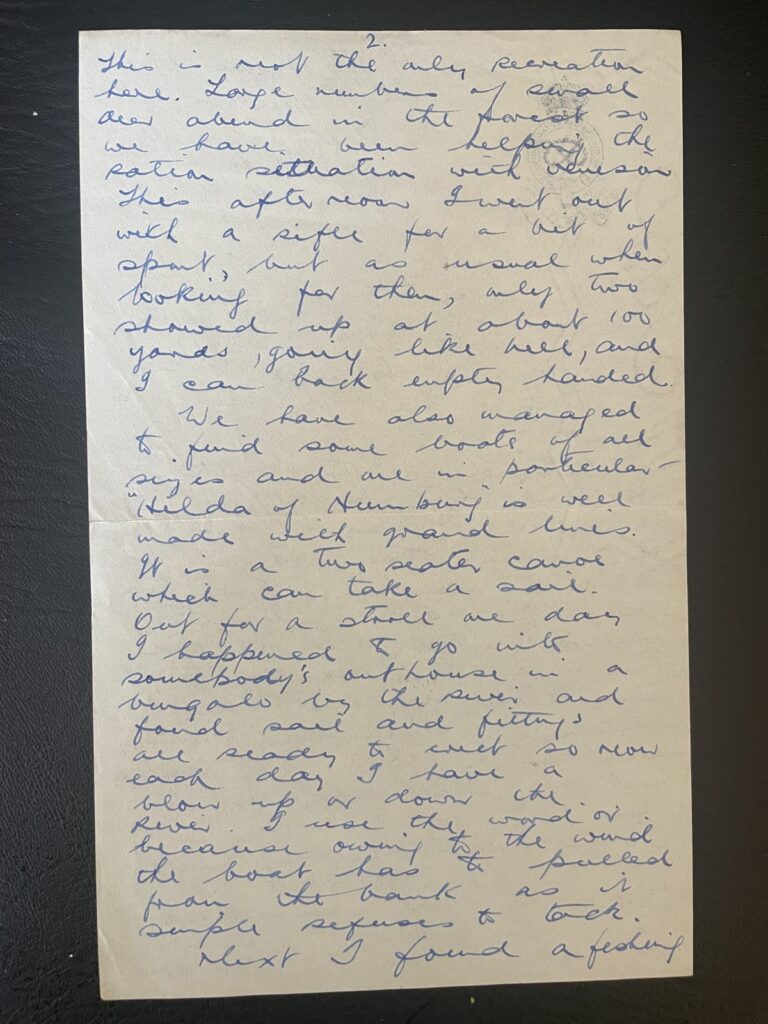 2.
This is not the only recreation
here. Large numbers of small
deer abound in the forest so
we have been helping the
ration situation with venison
This afternoon I went out
with a rifle for a bit of
sport, but as usual when
looking for them, only two
showed up at about 100
yards, going like hell, and
I cam back empty handed.
We have also managed
to find some boats of all
sizes and one in particular –
"Hilda of Humburg" is well
made with grand lines.
It is a two seater canoe
which can take a sail.
Out for a stroll one day
I happened to go into
somebody's outhouse in a
bungalo by the river and
found sail and fittings
all ready to use so now
each day I have a
blow up or down the
river. I use the word or
because owing to the wind
the boat has to pulled
from the bank as it
simple refuses to tack.
Next I found a fishing